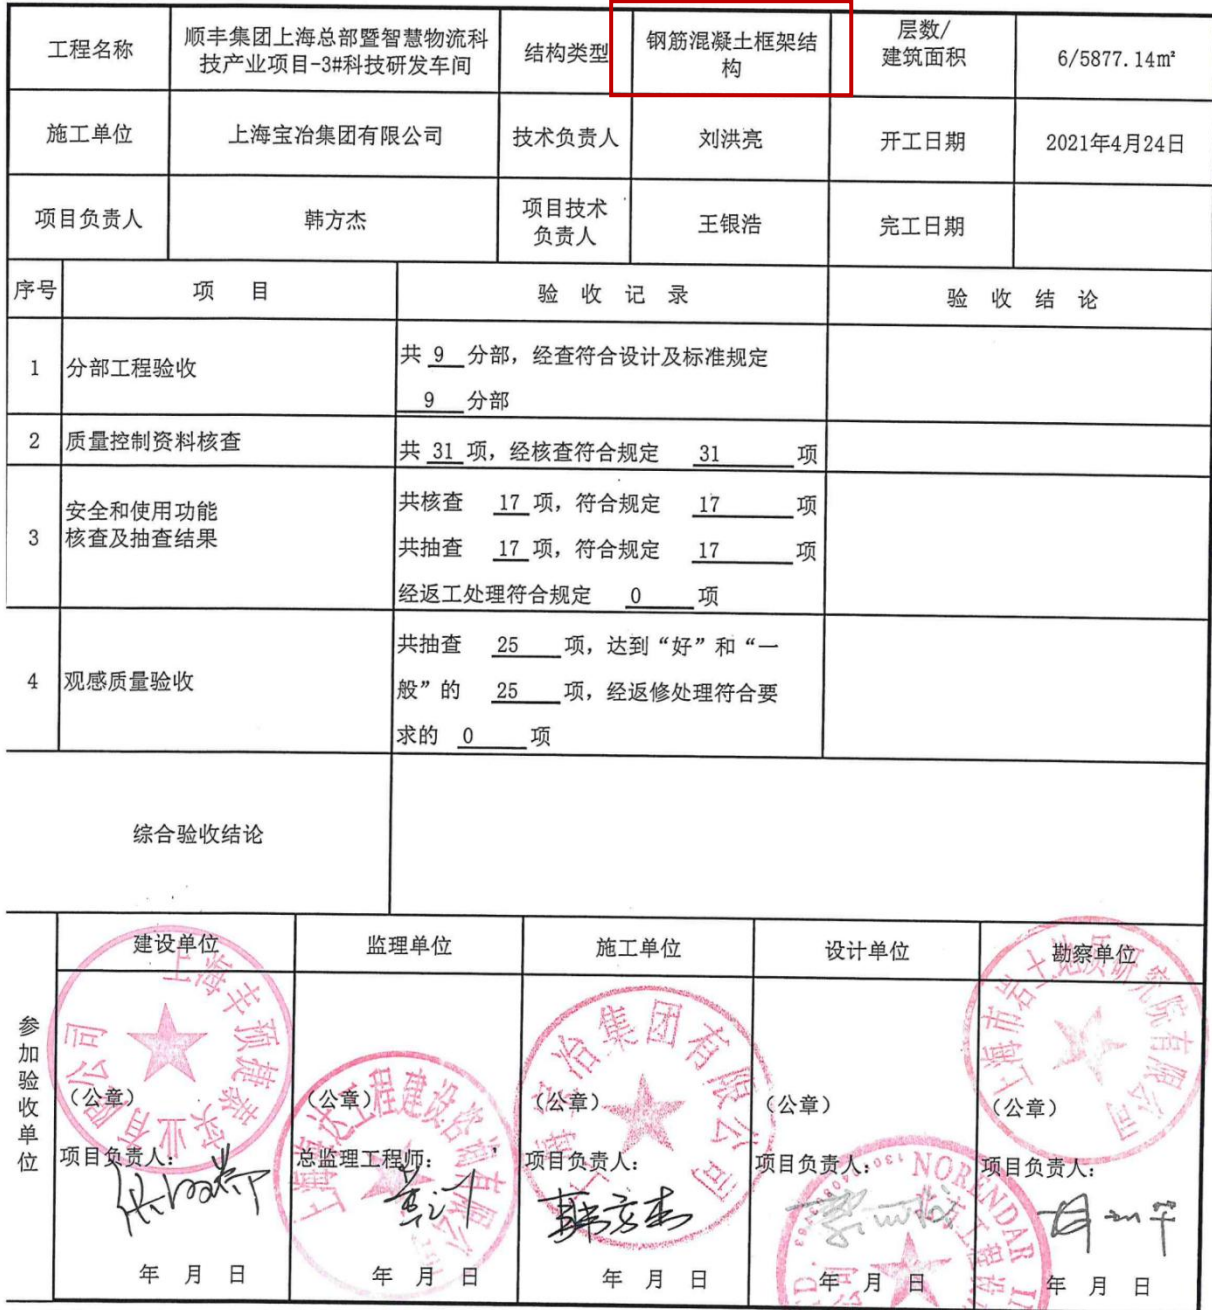 工程名称
顺丰集团上海总部暨智慧物流科
技产业项目-3#科技研发车间
结构类型
钢筋混凝土框架结
构
层数/
建筑面积
6/5877.14㎡
施工单位
上海宝冶集团有限公司
技术负责人
刘洪亮
开工日期
2021年4月24日
项目负责人
韩方杰
项目技术
负责人
王银浩
完工日期
序号
项 目
验 收 记 录
验 收 结 论
1
分部工程验收
共 9 分部，经查符合设计及标准规定
9 分部
2
质量控制资料核查
共 31 项，经核查符合规定 31 项
3
安全和使用功能
核查及抽查结果
共核查 17 项，符合规定 17 项
共抽查 17 项，符合规定 17 项
经返工处理符合规定 0 项
4
观感质量验收
共抽查 25 项，达到“好”和“一
般”的 25 项，经返修处理符合要
求的 0 项
综合验收结论
参加验收单位
建设单位
监理单位
施工单位
设计单位
勘察单位
（公章）
（公章）
（公章）
（公章）
（公章）
项目负责人：
总监理工程师：
项目负责人：
项目负责人：
项目负责人：
韩方杰
年 月 日
年 月 日
年 月 日
年 月 日
年 月 日
上海市岩土地质研究院有限公司
NORENDAR